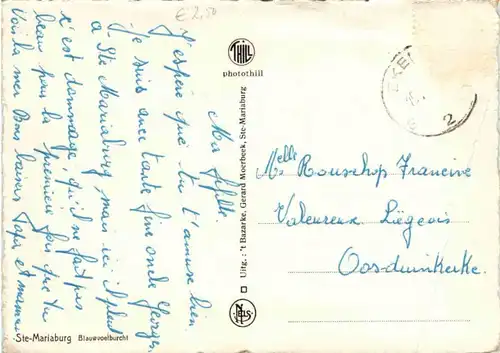 € 2,50
Ma fifille.
J'espère que tu t'amuse bien
je suis avec tante fine oncle Georges.
à Ste Mariaburg, mais ici il pleut
c'est dommage, qu'il ne fait pas
beau pour la première fois que tu
vois la mer Bons baisers Papa et maman
Ste-Mariaburg Blauwvoelburcht
THILL
photothill
Uitg. : 't Bazarke, Gerard Moerbeek, Ste-Mariaburg
NELS
EKE
2
Melle Rouschop Francine
Valeureux Liégeois
Oosduinkerke.